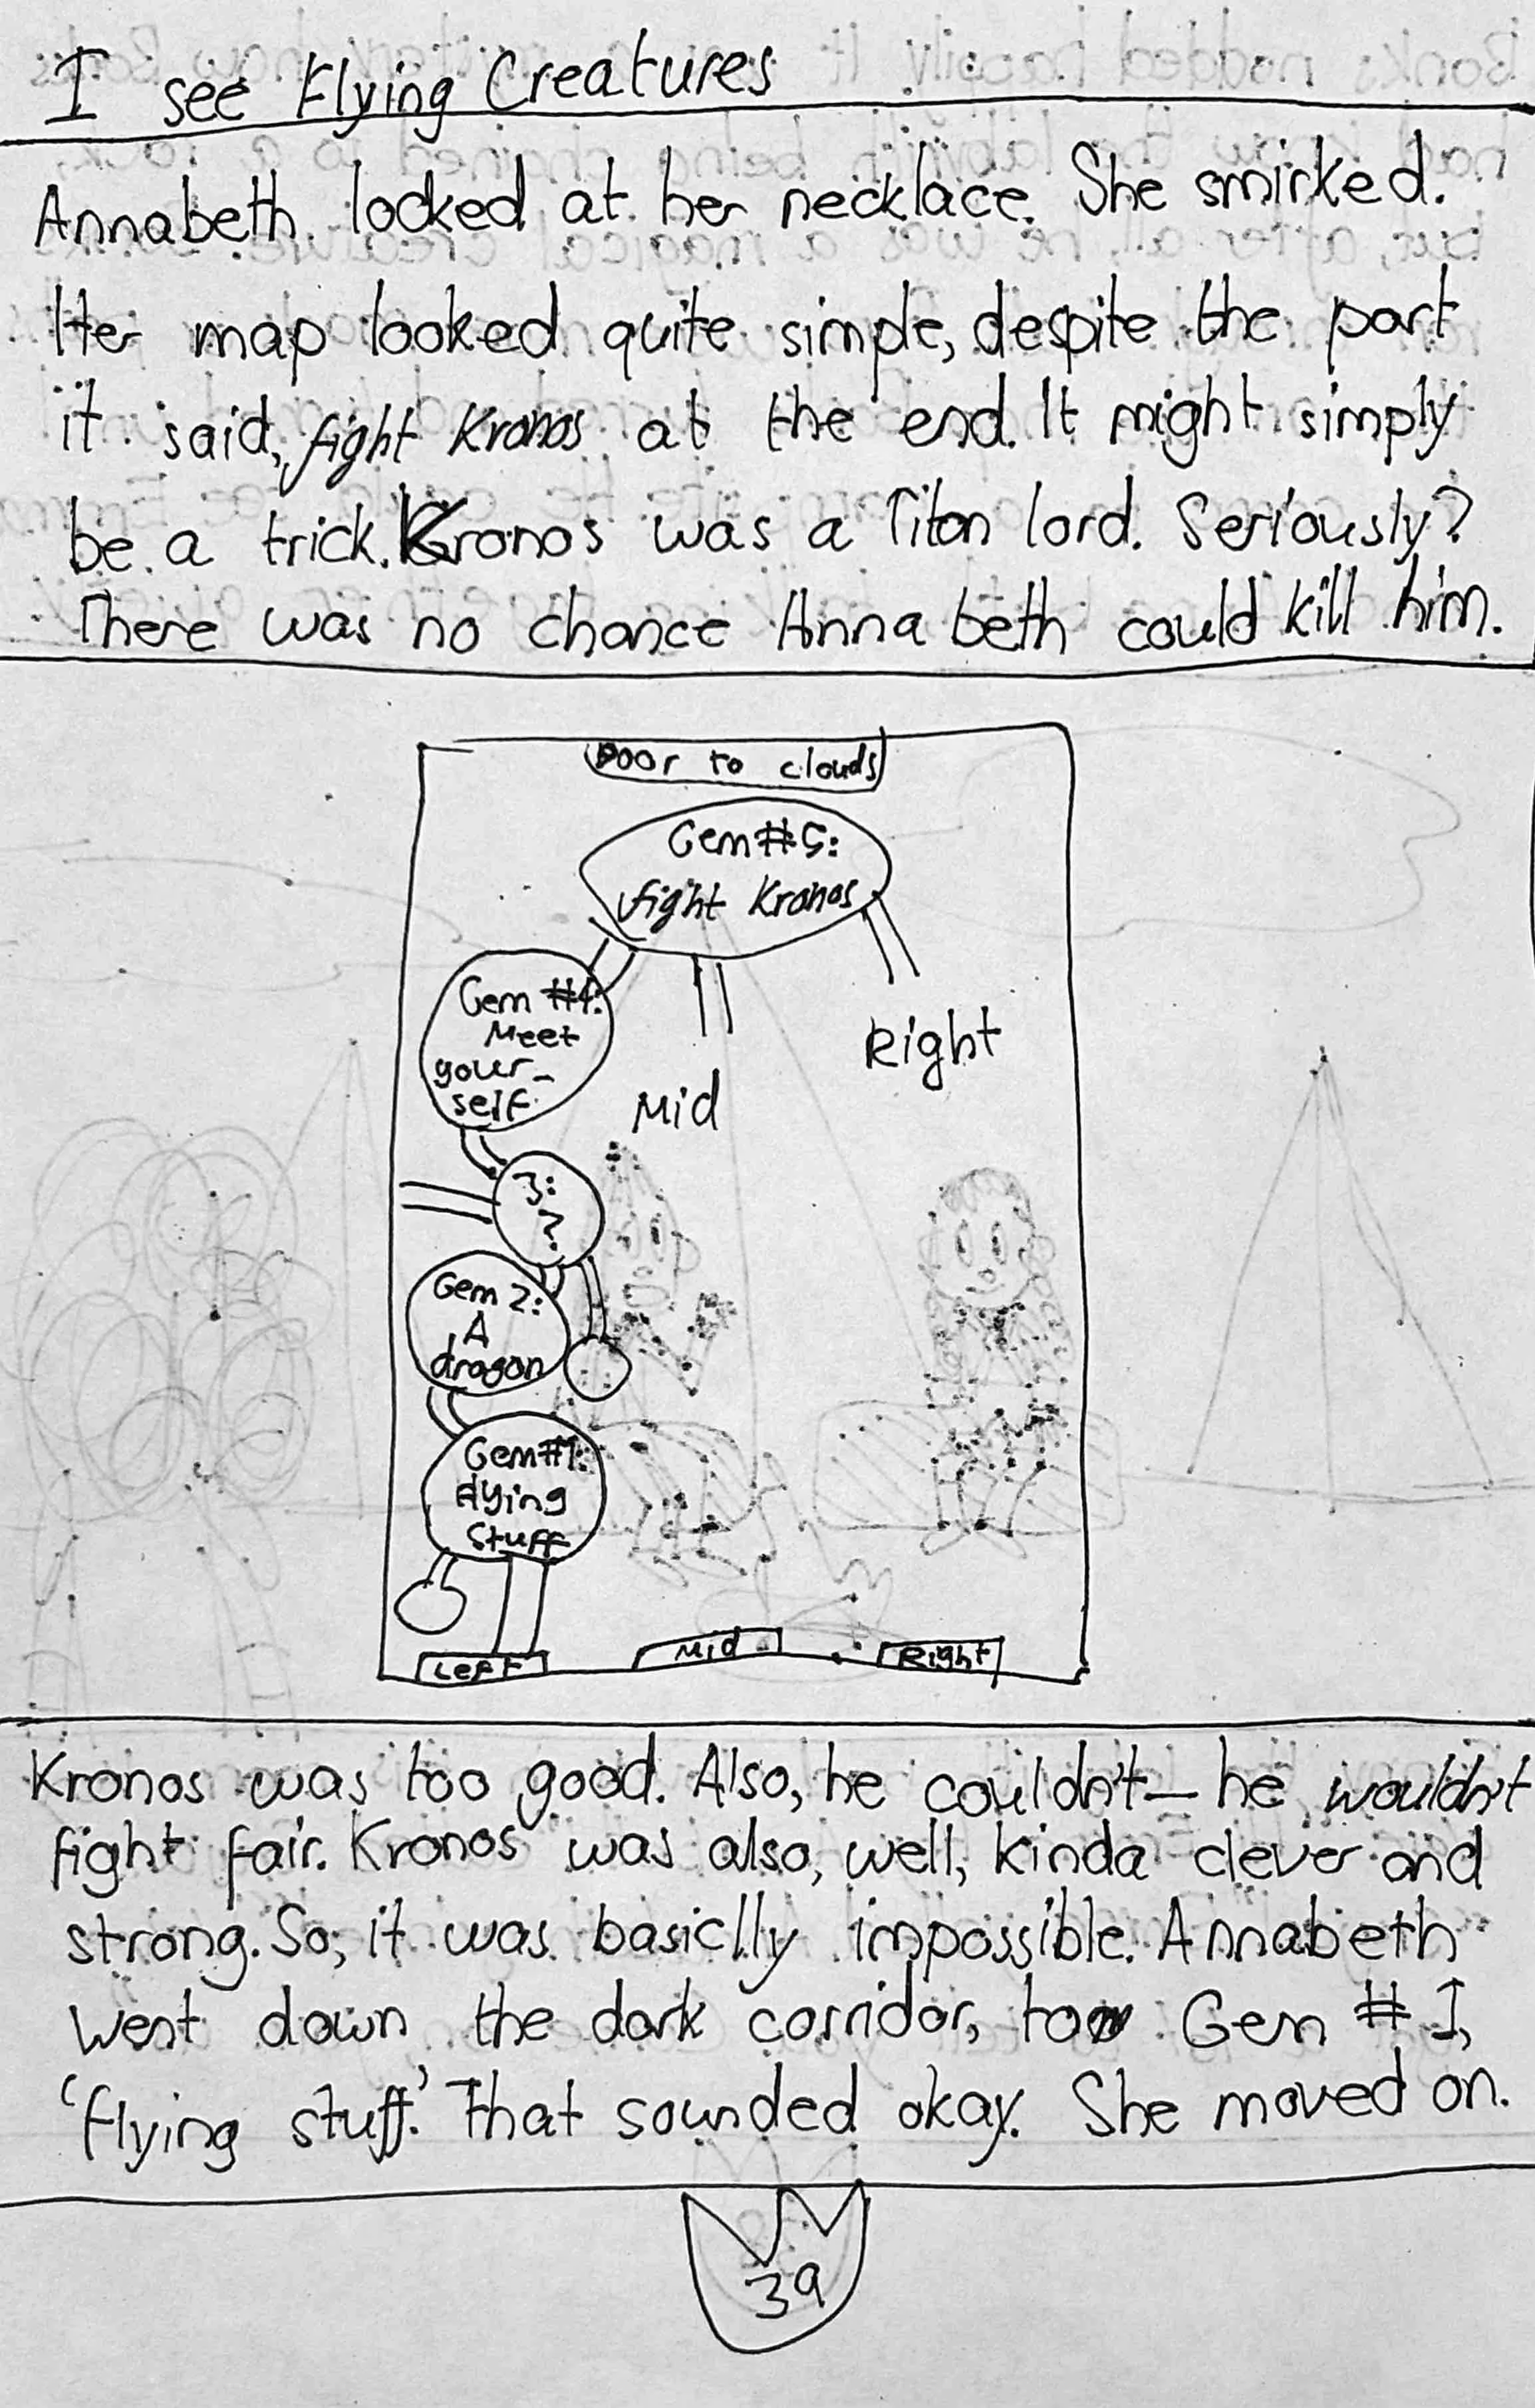 I see Flying Creatures
Annabeth looked at her necklace. She smirked.
Her map looked quite simple, despite the part
it said, fight Kronos at the end. It might simply
be a trick. Kronos was a Titan lord. Seriously?
There was no chance Annabeth could kill him.
Door to clouds
Gem #5:
fight Kronos
Gem #4:
Meet
your-
self.
Mid
Right
3:
?
Gem 2:
A
dragon
Gem #1:
flying
stuff
Left
Mid
Right
Kronos was too good. Also, he couldn't— he wouldn't
fight fair. Kronos was also, well, kinda clever and
strong. So, it was basiclly impossible. Annabeth
went down the dark corridor, to Gem # 1,
'flying stuff.' That sounded okay. She moved on.
39